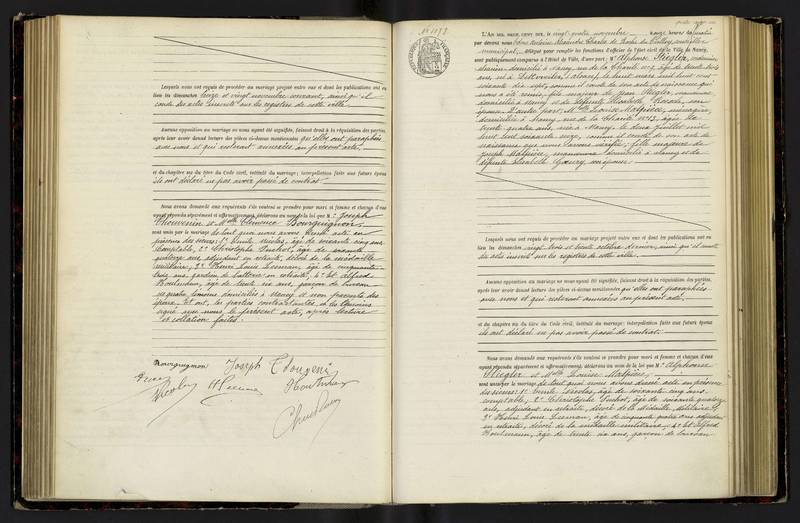 Lesquels nous ont requis de procéder au mariage projeté entre eux et dont les publications ont eu
lieu les dimanches treize et vingt novembre courant, ainsi qu'il
conste des actes inscrits sur les registres de cette ville.
Aucune opposition au mariage ne nous ayant été signifiée, faisant droit à la réquisition des parties,
après leur avoir donné lecture des pièces ci-dessus mentionnées qu'elles ont paraphées
avec nous et qui resteront annexées au présent acte.
et du chapitre six du titre du Code civil, intitulé du mariage; interpellation faite aux futurs époux
ils ont déclaré ne pas avoir passé de contrat.
Nous avons demandé aux requérants s'ils veulent se prendre pour mari et femme et chacun d'eux
ayant répondu séparément et affirmativement, déclarons au nom de la loi que M. Joseph
Thouvenin et Mlle Clémence Bourguignon,
sont unis par le mariage de tout quoi nous avons dressé acte en
présence des sieurs: 1° Emile Nicolas, âgé de soixante cinq ans
comptable, 2° Christophe
quatorze ans, adjudant en retraite, décoré de la médaille
militaire, 3° Henri Louis
trois ans, en retraite, 4° et Alfred
âgé de trente six ans, garçon de bureau
les quatre témoins domiciliés à Nancy et non parents des
époux. Et ont, les parties contractantes et les témoins
signé avec nous le présent acte, après lecture
et collation faites.
Bourguignon Joseph Thouvenin
Nicolas
N° 1193
L'AN MIL NEUF CENT DIX, le vingt quatre novembre onze heures du matin
par devant nous
municipal, délégué pour remplir les fonctions d'officier de l'état civil de la Ville de Nancy,
sont publiquement comparus à l'Hôtel de Ville, d'une part: M. Alphonse Stiegler,
domicilié à Nancy, rue de la Charité n° 9, âgé de trente trois
ans, né à Dettwiller, (Alsace), le huit mars mil huit cent
soixante dix sept, comme il conste de son acte de naissance qui
nous a été remis, fils majeur de Jean Stiegler, manœuvre
domicilié à Nancy et de défunte Elisabeth son
épouse. D'autre part, Mlle Louise Malpière, ménagère
domiciliée à Nancy, rue de la Charité n° 13, âgée de
trente quatre ans, née à Nancy, le deux juillet mil
huit cent soixante seize, comme il conste de son acte de
naissance que nous avons vérifié; fille majeure de
Joseph Malpière, manœuvre domicilié à Nancy et de
défunte Elisabeth son épouse.
Lesquels nous ont requis de procéder au mariage projeté entre eux et dont les publications ont eu
lieu les dimanches vingt trois et trente octobre dernier, ainsi qu'il conste
des actes inscrits sur les registres de cette ville.
Aucune opposition au mariage ne nous ayant été signifiée, faisant droit à la réquisition des parties,
après leur avoir donné lecture des pièces ci-dessus mentionnées qu'elles ont paraphées
avec nous et qui resteront annexées au présent acte.
et du chapitre six du titre du Code civil, intitulé du mariage; interpellation faite aux futurs époux
ils ont déclaré ne pas avoir passé de contrat.
Nous avons demandé aux requérants s'ils veulent se prendre pour mari et femme et chacun d'eux
ayant répondu séparément et affirmativement, déclarons au nom de la loi que M. Alphonse
Stiegler et Mlle Louise Malpière,
sont unis par le mariage de tout quoi nous avons dressé acte en présence
des sieurs: 1° Emile Nicolas, âgé de soixante cinq ans,
comptable, 2° Christophe âgé de soixante quatorze
ans, adjudant en retraite, décoré de la Médaille Militaire,
3° Henri Louis âgé de cinquante quatre ans, adjudant
en retraite, décoré de la médaille militaire, 4° et Alfred
âgé de trente six ans, garçon de bureau